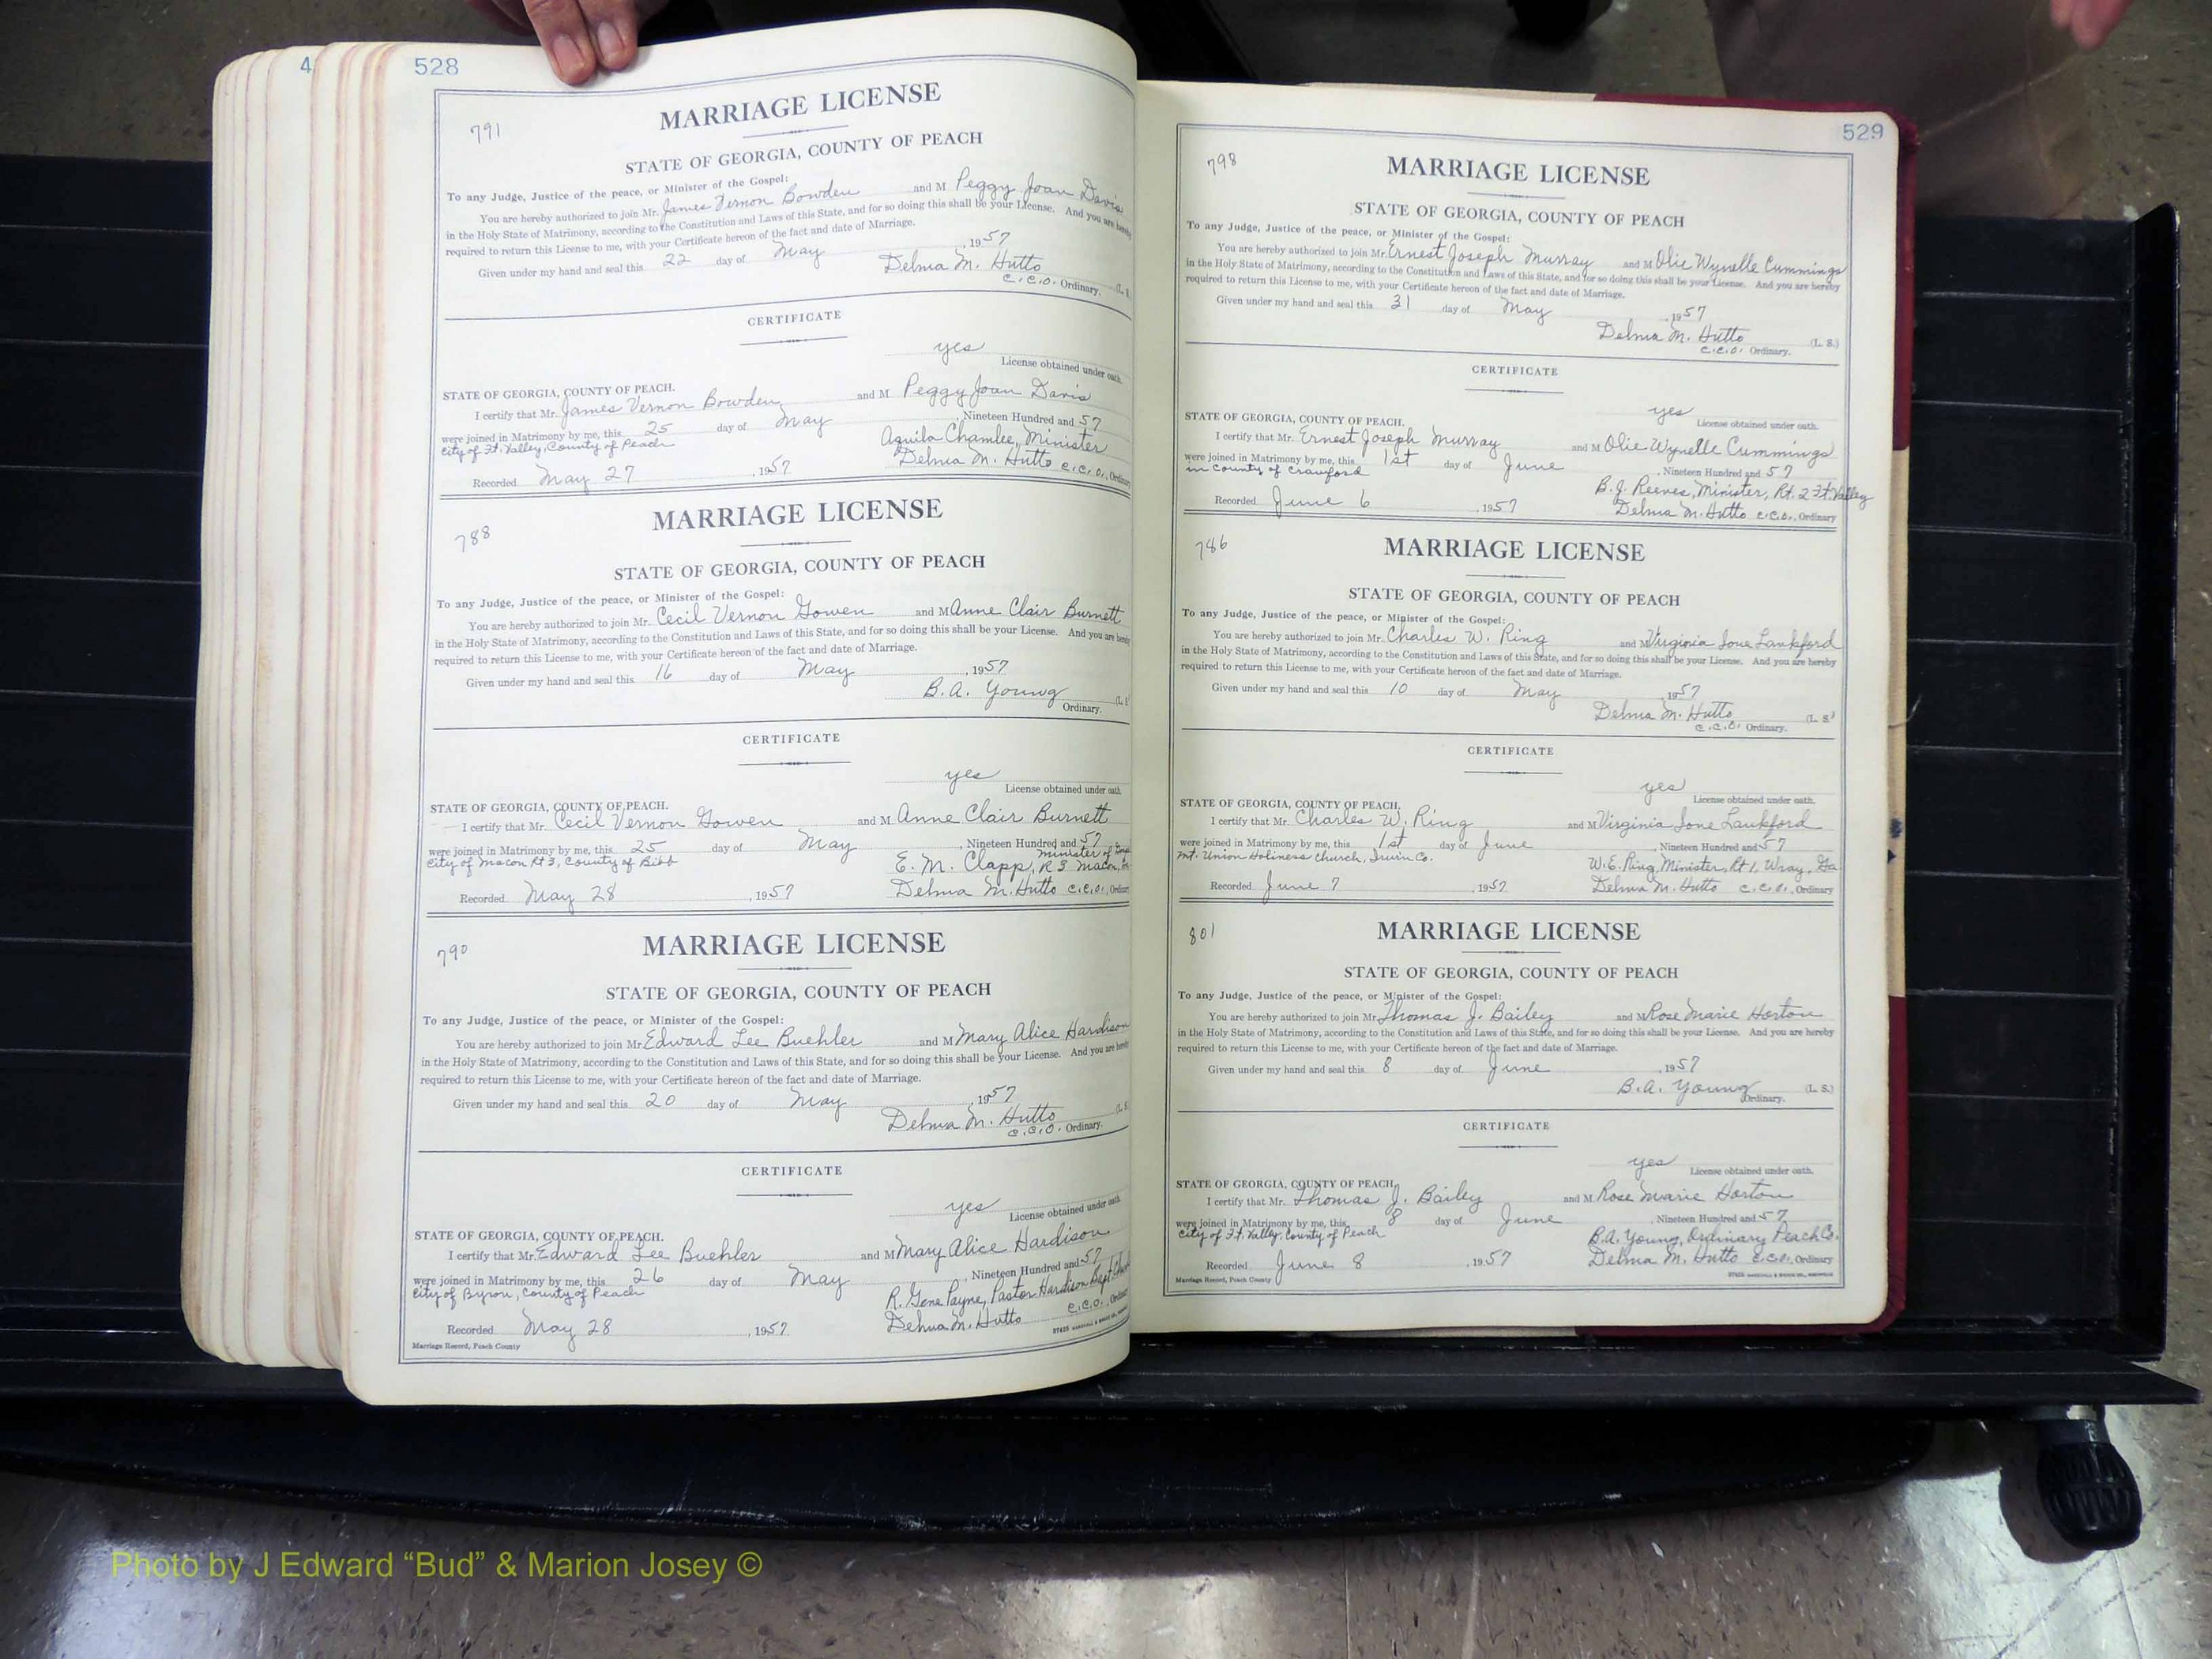 4
528
791
MARRIAGE LICENSE
STATE OF GEORGIA, COUNTY OF PEACH
To any Judge, Justice of the peace, or Minister of the Gospel:
You are hereby authorized to join Mr. James Vernon Bowden and M Peggy Joan Davis
in the Holy State of Matrimony, according to the Constitution and Laws of this State, and for so doing this shall be your License. And you are hereby
required to return this License to me, with your Certificate hereon of the fact and date of Marriage.
Given under my hand and seal this 22 day of May, 1957
Delma M. Hutto
C.C.O. Ordinary. (L. S.
CERTIFICATE
yes
License obtained under oath.
STATE OF GEORGIA, COUNTY OF PEACH.
I certify that Mr. James Vernon Bowden and M Peggy Joan Davis
were joined in Matrimony by me, this 25 day of May, Nineteen Hundred and 57
City of Ft. Valley, County of Peach Aquila Chamlee, Minister
Recorded May 27, 1957 Delma M. Hutto C.C.O., Ordinary
788
MARRIAGE LICENSE
STATE OF GEORGIA, COUNTY OF PEACH
To any Judge, Justice of the peace, or Minister of the Gospel:
You are hereby authorized to join Mr. Cecil Vernon Gowen and M Anne Clair Burnett
in the Holy State of Matrimony, according to the Constitution and Laws of this State, and for so doing this shall be your License. And you are hereby
required to return this License to me, with your Certificate hereon of the fact and date of Marriage.
Given under my hand and seal this 16 day of May, 1957
B.A. Young (L. S
Ordinary.
CERTIFICATE
yes
License obtained under oath.
STATE OF GEORGIA, COUNTY OF PEACH.
I certify that Mr. Cecil Vernon Gowen and M Anne Clair Burnett
were joined in Matrimony by me, this 25 day of May, Nineteen Hundred and 57
City of Macon Rt 3, County of Bibb E. M. Clapp, Minister of R 3 Macon,
Recorded May 28, 1957 Delma M. Hutto C.C.O., Ordinary
790
MARRIAGE LICENSE
STATE OF GEORGIA, COUNTY OF PEACH
To any Judge, Justice of the peace, or Minister of the Gospel:
You are hereby authorized to join Mr. Edward Lee Buehler and M Mary Alice Hardison
in the Holy State of Matrimony, according to the Constitution and Laws of this State, and for so doing this shall be your License. And you are hereby
required to return this License to me, with your Certificate hereon of the fact and date of Marriage.
Given under my hand and seal this 20 day of May, 1957
Delma M. Hutto (L. S
C.C.O. Ordinary.
CERTIFICATE
yes
License obtained under oath.
STATE OF GEORGIA, COUNTY OF PEACH.
I certify that Mr. Edward Lee Buehler and M Mary Alice Hardison
were joined in Matrimony by me, this 26 day of May, Nineteen Hundred and 57
City of Byron, County of Peach R. Gene Payne, Pastor Hardison Bapt. Church
Recorded May 28, 1957 Delma M. Hutto C.C.O., Ordinary
Marriage Record, Peach County
529
798
MARRIAGE LICENSE
STATE OF GEORGIA, COUNTY OF PEACH
To any Judge, Justice of the peace, or Minister of the Gospel:
You are hereby authorized to join Mr. Ernest Joseph Murray and M Olie Wynelle Cummings
in the Holy State of Matrimony, according to the Constitution and Laws of this State, and for so doing this shall be your License. And you are hereby
required to return this License to me, with your Certificate hereon of the fact and date of Marriage.
Given under my hand and seal this 31 day of May, 1957
Delma M. Hutto (L. S.)
C.C.O. Ordinary.
CERTIFICATE
yes
License obtained under oath.
STATE OF GEORGIA, COUNTY OF PEACH.
I certify that Mr. Ernest Joseph Murray and M Olie Wynelle Cummings
were joined in Matrimony by me, this 1st day of June, Nineteen Hundred and 57
in County of Crawford B.J. Reeves, Minister, Rt. 2 Ft. Valley
Recorded June 6, 1957 Delma M. Hutto C.C.O., Ordinary
786
MARRIAGE LICENSE
STATE OF GEORGIA, COUNTY OF PEACH
To any Judge, Justice of the peace, or Minister of the Gospel:
You are hereby authorized to join Mr. Charles W. Ring and M Virginia Ione Lankford
in the Holy State of Matrimony, according to the Constitution and Laws of this State, and for so doing this shall be your License. And you are hereby
required to return this License to me, with your Certificate hereon of the fact and date of Marriage.
Given under my hand and seal this 10 day of May, 1957
Delma M. Hutto (L. S.)
C.C.O. Ordinary.
CERTIFICATE
yes
License obtained under oath.
STATE OF GEORGIA, COUNTY OF PEACH.
I certify that Mr. Charles W. Ring and M Virginia Ione Lankford
were joined in Matrimony by me, this 1st day of June, Nineteen Hundred and 57
Mt. Union Holiness Church, Irwin Co. W.E. Ring, Minister, Rt 1, Wray, Ga
Recorded June 7, 1957 Delma M. Hutto C.C.O., Ordinary
801
MARRIAGE LICENSE
STATE OF GEORGIA, COUNTY OF PEACH
To any Judge, Justice of the peace, or Minister of the Gospel:
You are hereby authorized to join Mr. Thomas J. Bailey and M Rose Marie Horton
in the Holy State of Matrimony, according to the Constitution and Laws of this State, and for so doing this shall be your License. And you are hereby
required to return this License to me, with your Certificate hereon of the fact and date of Marriage.
Given under my hand and seal this 8 day of June, 1957
B.A. Young (L. S.)
Ordinary.
CERTIFICATE
yes
License obtained under oath.
STATE OF GEORGIA, COUNTY OF PEACH.
I certify that Mr. Thomas J. Bailey and M Rose Marie Horton
were joined in Matrimony by me, this 8 day of June, Nineteen Hundred and 57
City of Ft. Valley, County of Peach B.A. Young, Ordinary Peach Co.
Recorded June 8, 1957 Delma M. Hutto C.C.O., Ordinary
Marriage Record, Peach County
Photo by J Edward “Bud” & Marion Josey ©